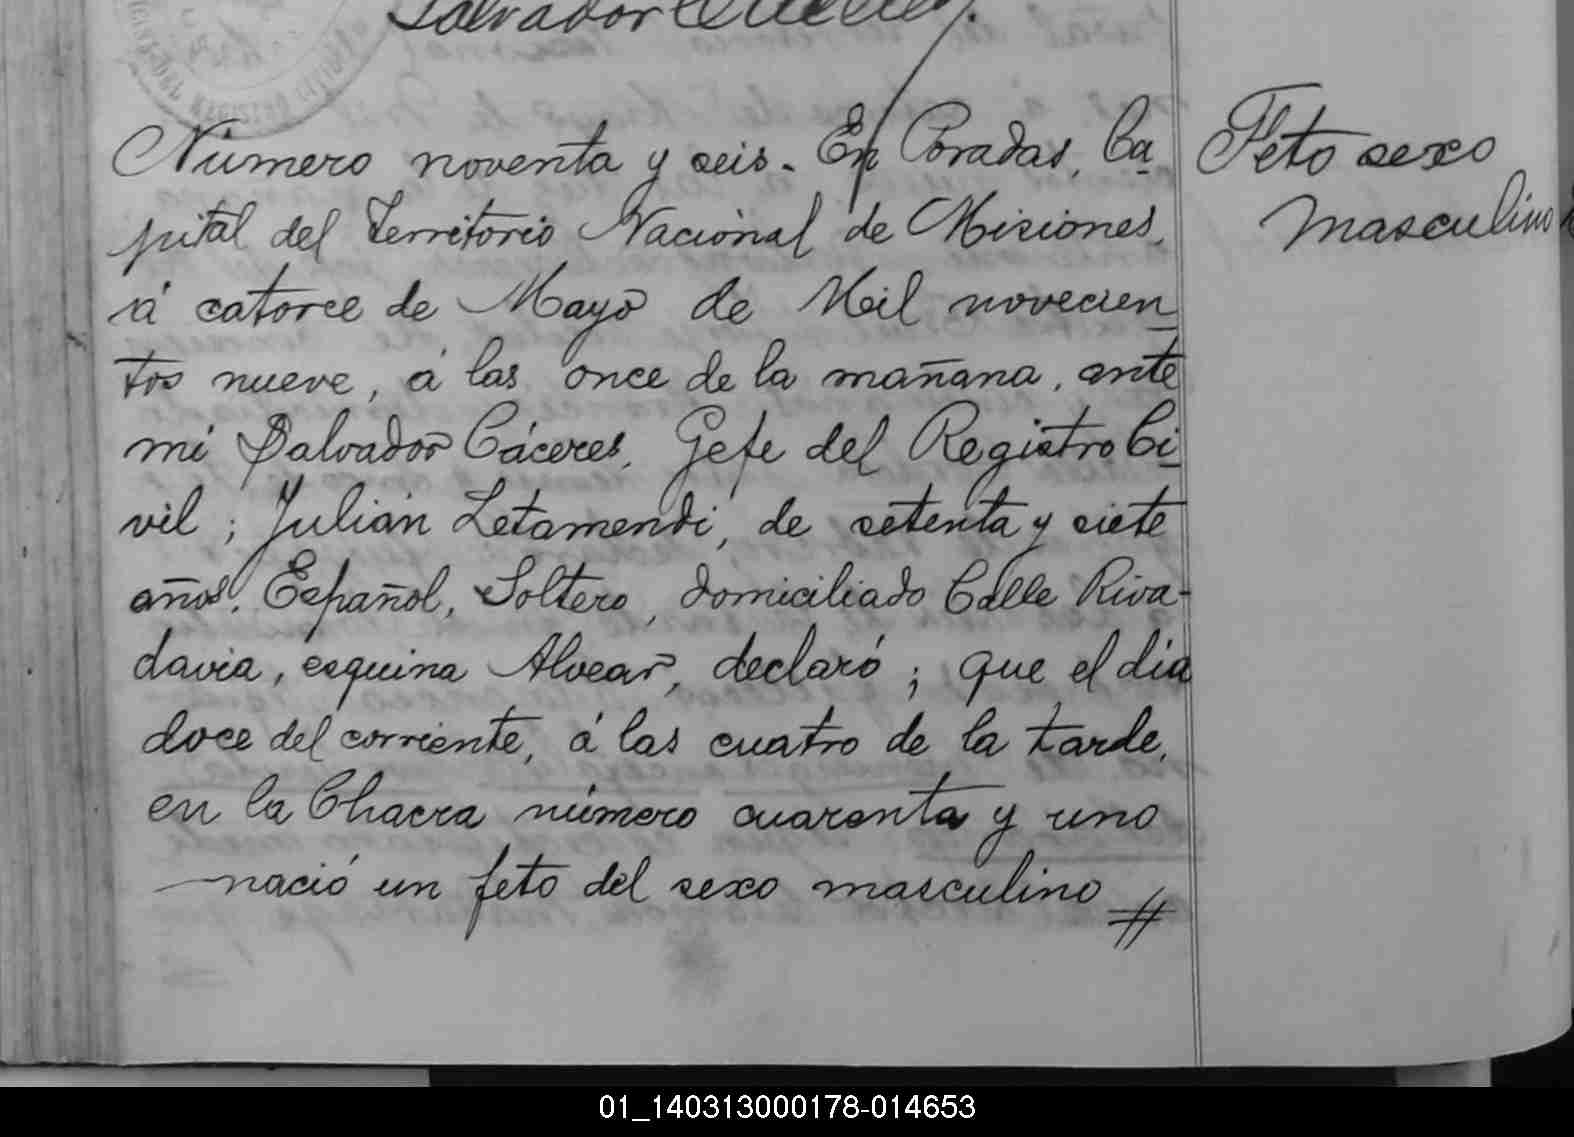 Salvador Cáceres.
Número noventa y seis. En Posadas, Ca-
pital del Territorio Nacional de Misiones,
á catorce de Mayo de Mil novecien-
tos nueve, á las once de la mañana, ante
mi Salvador Cáceres, Gefe del Registro Ci-
vil; Julián Letamendi, de setenta y siete
años, Español, Soltero, domiciliado Calle Riva-
davia, esquina Alvear, declaró; que el dia
doce del corriente, á las cuatro de la tarde,
en la Chacra número cuarenta y uno
nació un feto del sexo masculino //
Feto sexo
masculino
REGISTRO CIVIL
01_140313000178-014653